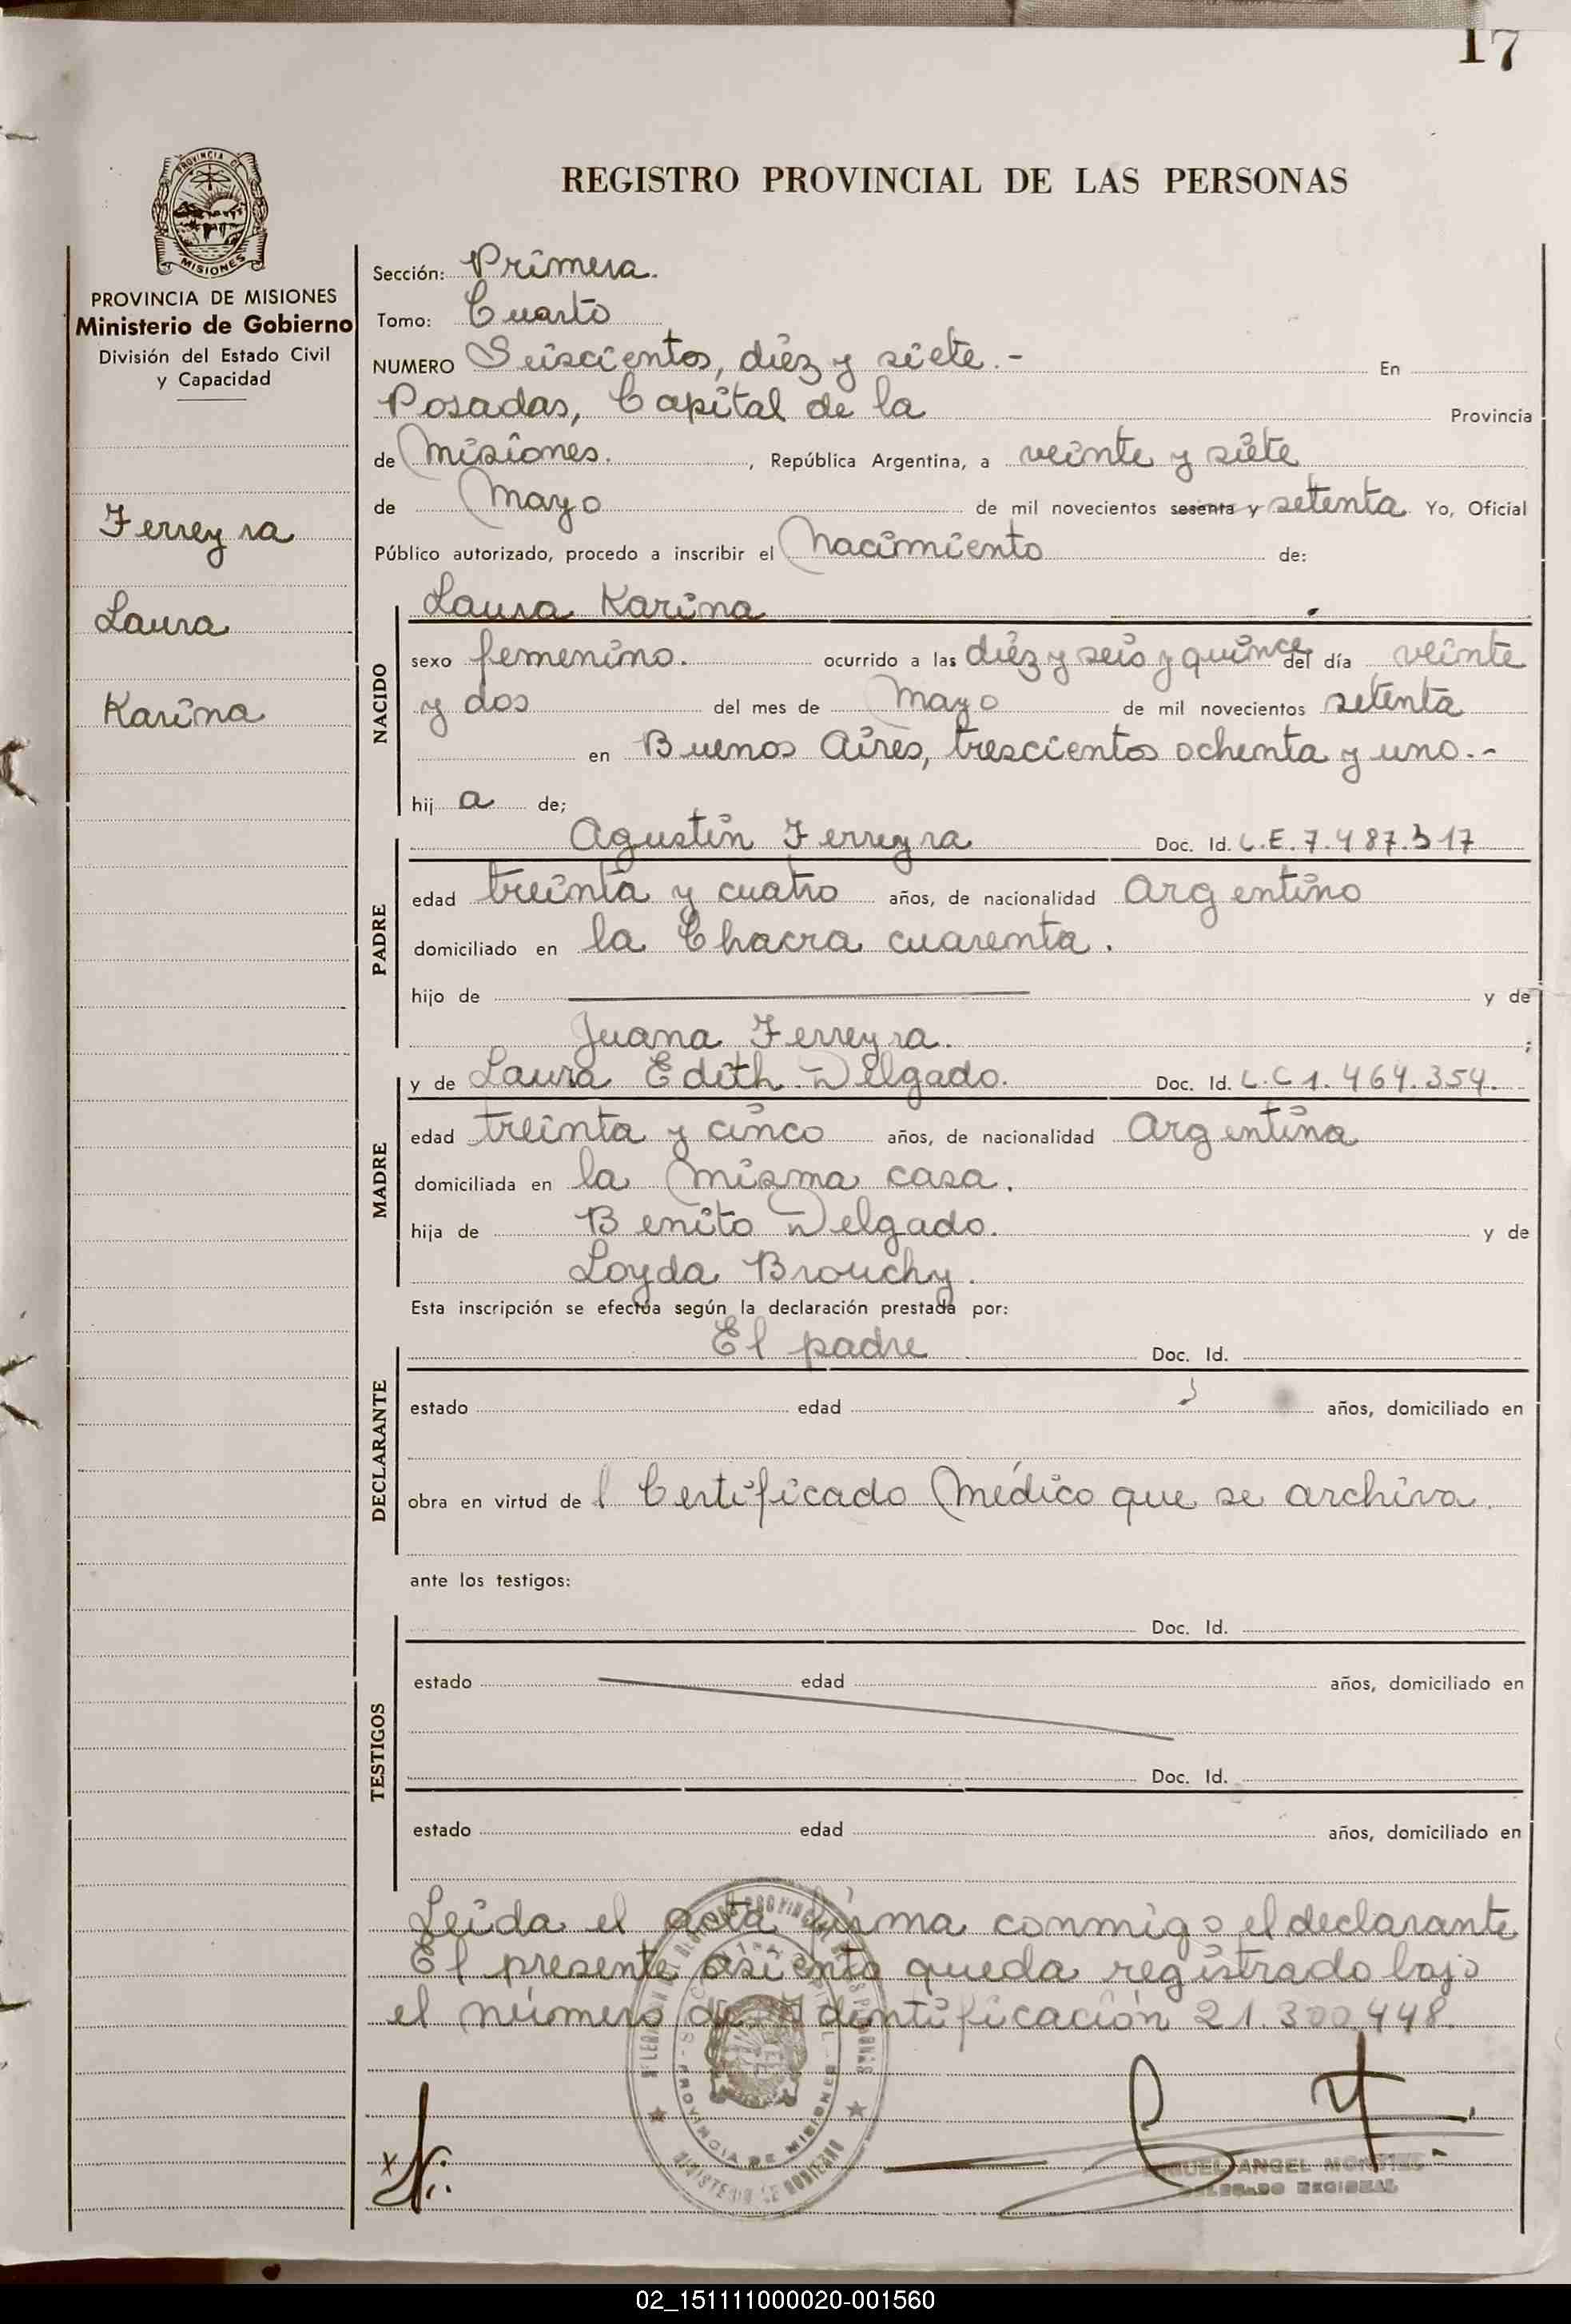 17
PROVINCIA DE
MISIONES
PROVINCIA DE MISIONES
Ministerio de Gobierno
División del Estado Civil
y Capacidad
Ferreyra
Laura
Karina
REGISTRO PROVINCIAL DE LAS PERSONAS
Sección: Primera.
Tomo: Cuarto
NUMERO Seiscientos, diéz y siete.- En
Posadas, Capital de la Provincia
de Misiones. , República Argentina, a veinte y siete
de Mayo de mil novecientos sesenta y setenta Yo, Oficial
Público autorizado, procedo a inscribir el Nacimiento de:
NACIDO
Laura Karina
sexo femenino. ocurrido a las diéz y seis y quince del día veinte
y dos del mes de Mayo de mil novecientos setenta
en Buenos Aires, trescientos ochenta y uno.-
hij a de;
PADRE
Agustín Ferreyra Doc. Id. L.E. 7.487.317
edad treinta y cuatro años, de nacionalidad Argentino
domiciliado en la Chacra cuarenta.
hijo de y de
Juana Ferreyra. ;
MADRE
y de Laura Edith Delgado. Doc. Id. L.C 1.464.354.
edad treinta y cinco años, de nacionalidad Argentina
domiciliada en la misma casa.
hija de Benito Delgado. y de
Loyda Brouchy.
Esta inscripción se efectúa según la declaración prestada por:
DECLARANTE
El padre Doc. Id.
estado edad años, domiciliado en
obra en virtud de l Certificado Médico que se archiva.
ante los testigos:
TESTIGOS
Doc. Id.
estado edad años, domiciliado en
Doc. Id.
estado edad años, domiciliado en
Leida el acta firma conmigo el declarante
El presente asiento queda registrado bajo
el número de Identificación 21.300.448.
PROVINCIA DE MISIONES
MINISTERIO DE GOBIERNO
ANGEL
DELEGADO REGIONAL
02_151111000020-001560